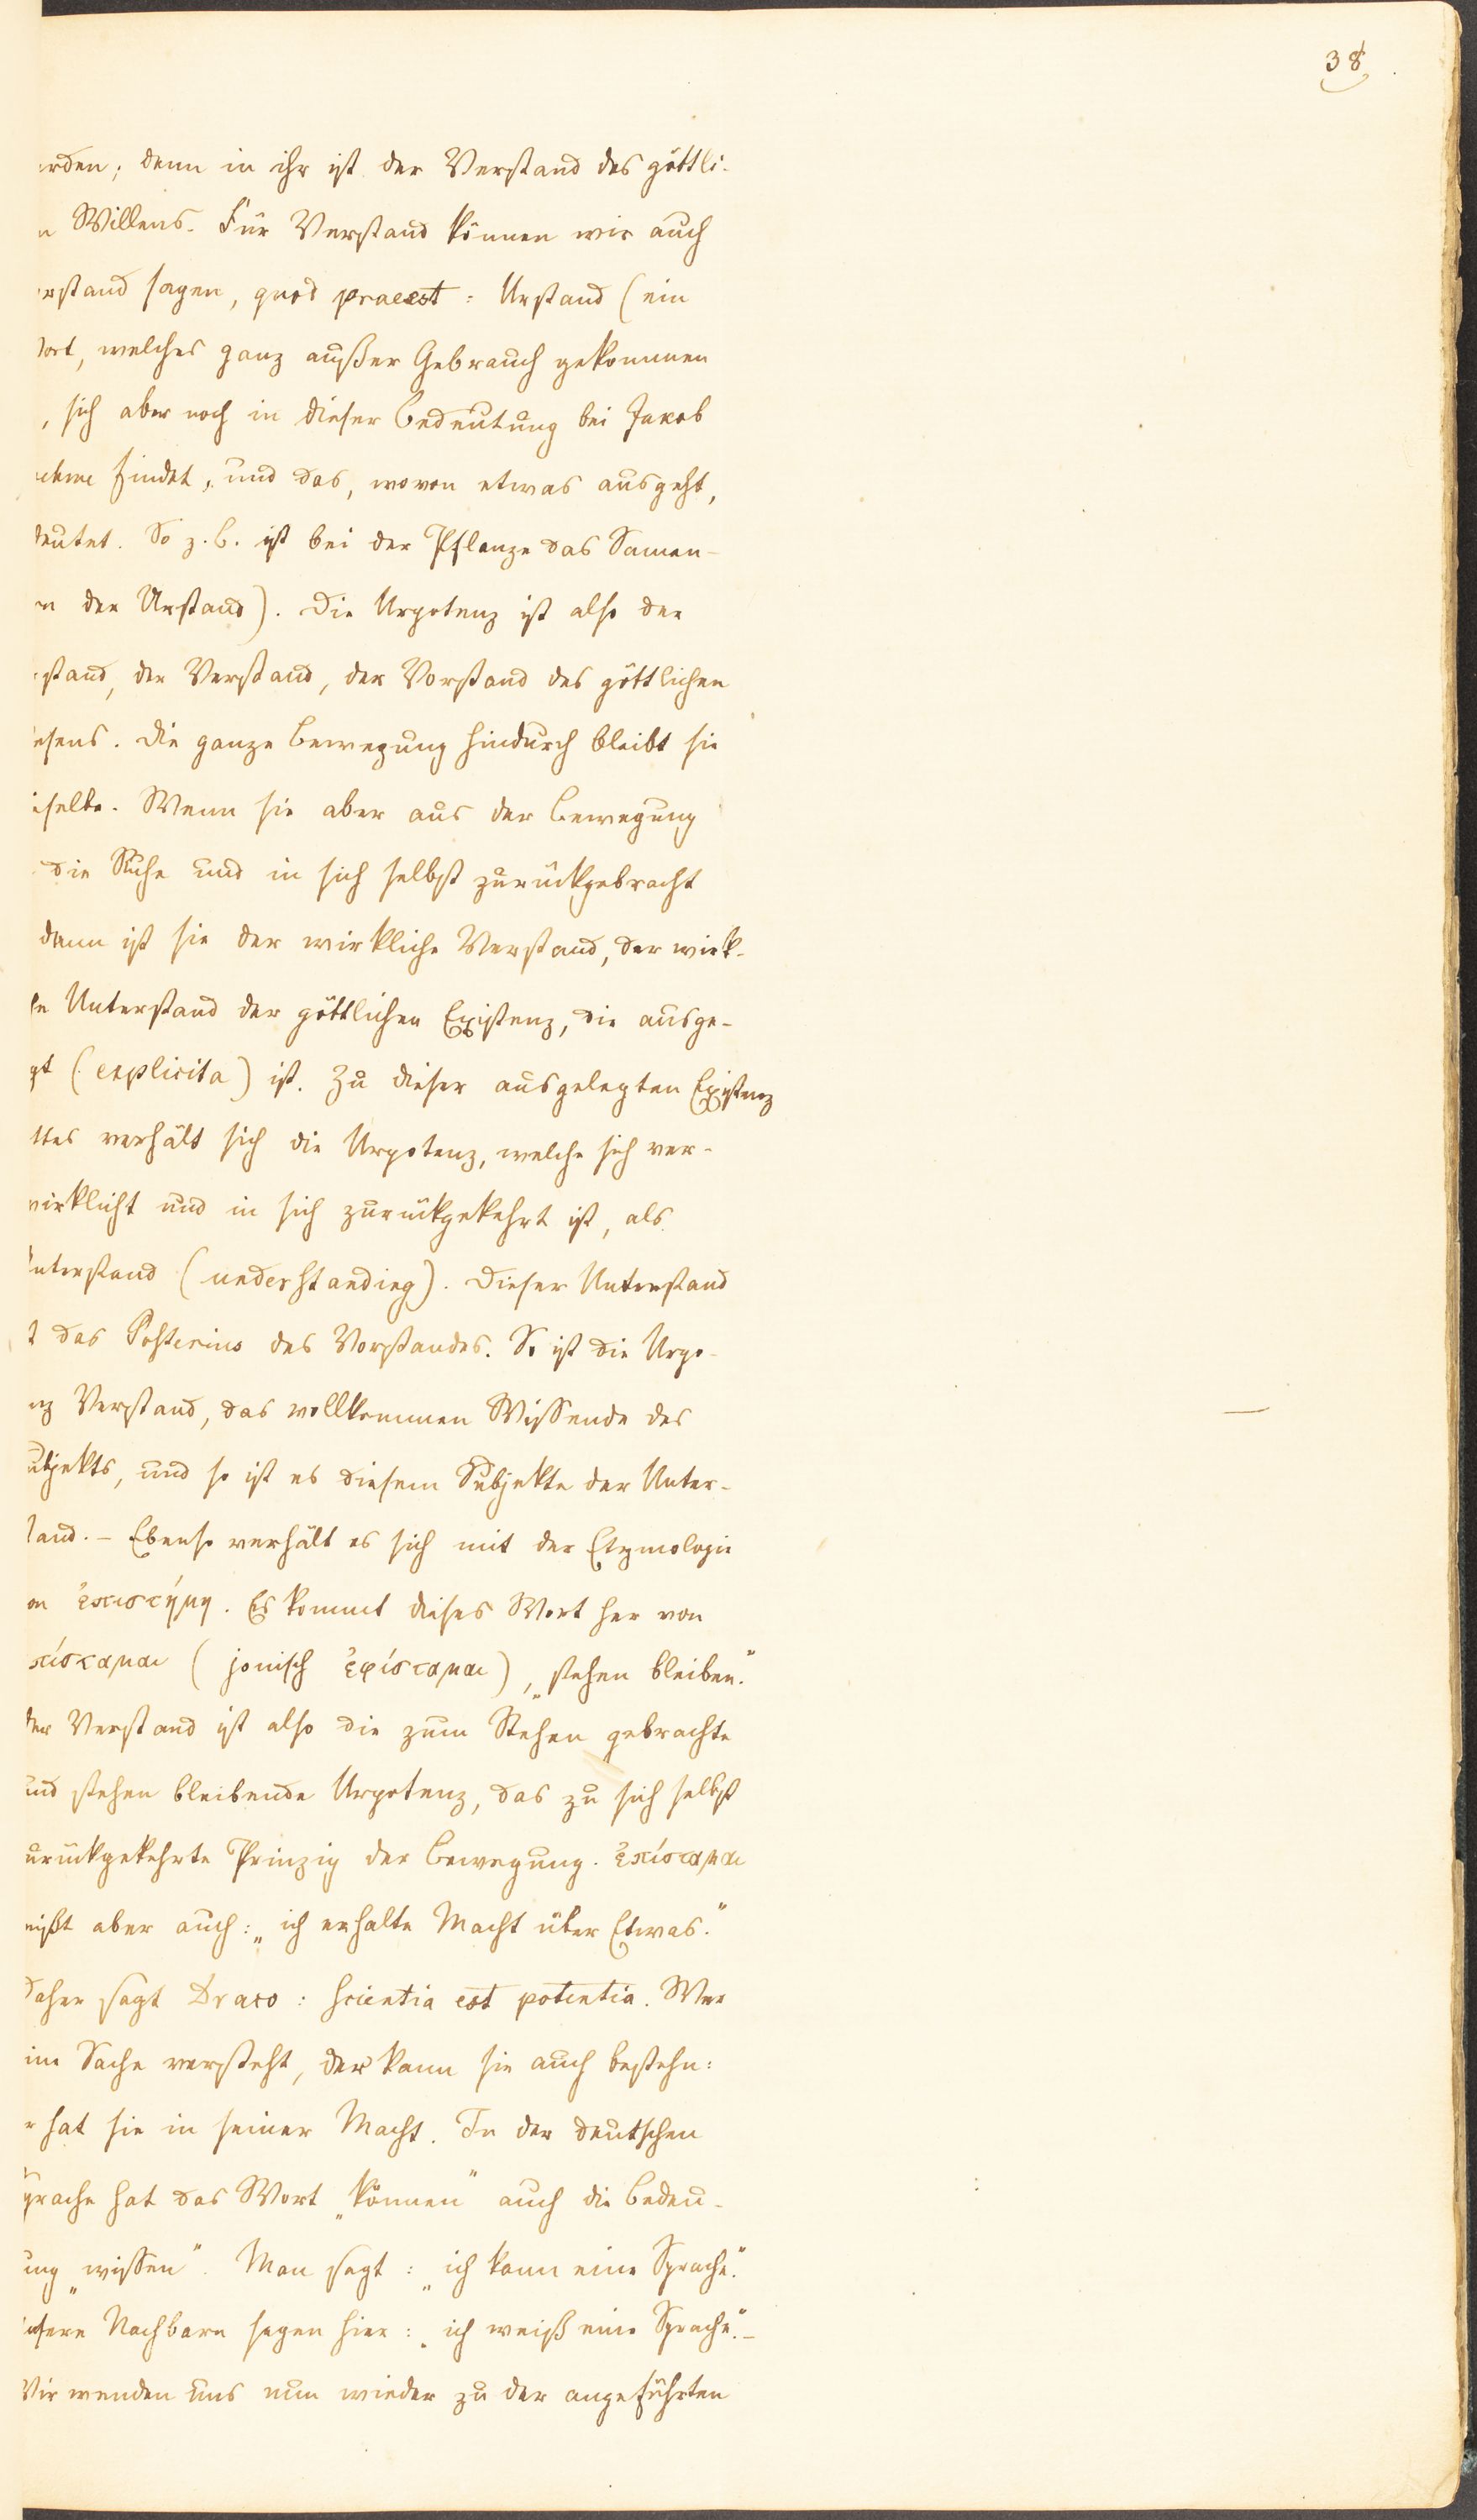 38
rden; denn in ihr ist der Verstand des göttli-
n Willens. Für Verstand können wir auch
rstand sagen, quod praeest: Urstand (ein
ort, welches ganz außer Gebrauch gekommen
, sich aber noch in dieser Bedeutung bei Jakob
ehme findet, und das, wovon etwas ausgeht,
deutet. So z. B. ist bei der Pflanze das Samen-
n der Urstand). Die Urpotenz ist also der
stand, der Verstand, der Vorstand des göttlichen
esens. Die ganze Bewegung hindurch bleibt sie
iselbe. Wenn sie aber aus der Bewegung
die Ruhe und in sich selbst zurückgebracht
dann ist sie der wirkliche Verstand, der wirk-
he Unterstand der göttlichen Existenz, die ausge-
gt (explicita) ist. Zu dieser ausgelegten Existenz
ttes verhält sich die Urpotenz, welche sich ver-
wirklicht und in sich zurückgekehrt ist, als
nterstand (understanding). Dieser Unterstand
t das Posterius des Vorstandes. So ist die Urpo-
nz Verstand, das vollkommen Wissende des
ubjekts, und so ist es diesem Subjekte der Unter-
tand. – Ebenso verhält es sich mit der Etymologie
on ἐπιστήμη. Es kommt dieses Wort her von
πίσταμαι (jonisch ἐφίσταμαι), „stehen bleiben."
der Verstand ist also die zum Stehen gebrachte
und stehen bleibende Urpotenz, das zu sich selbst
urückgekehrte Prinzip der Bewegung. ἐπίσταμαι
eißt aber auch: „ich erhalte Macht über Etwas."
Daher sagt Draco: scientia est potentia. Wer
ine Sache versteht, der kann sie auch bestehn:
r hat sie in seiner Macht. In der deutschen
Sprache hat das Wort „können" auch die Bedeu-
ung „wissen". Man sagt: „ich kann eine Sprache."
nsere Nachbarn sagen hier: „ich weiß eine Sprache." –
Wir wenden uns nun wieder zu der angeführten